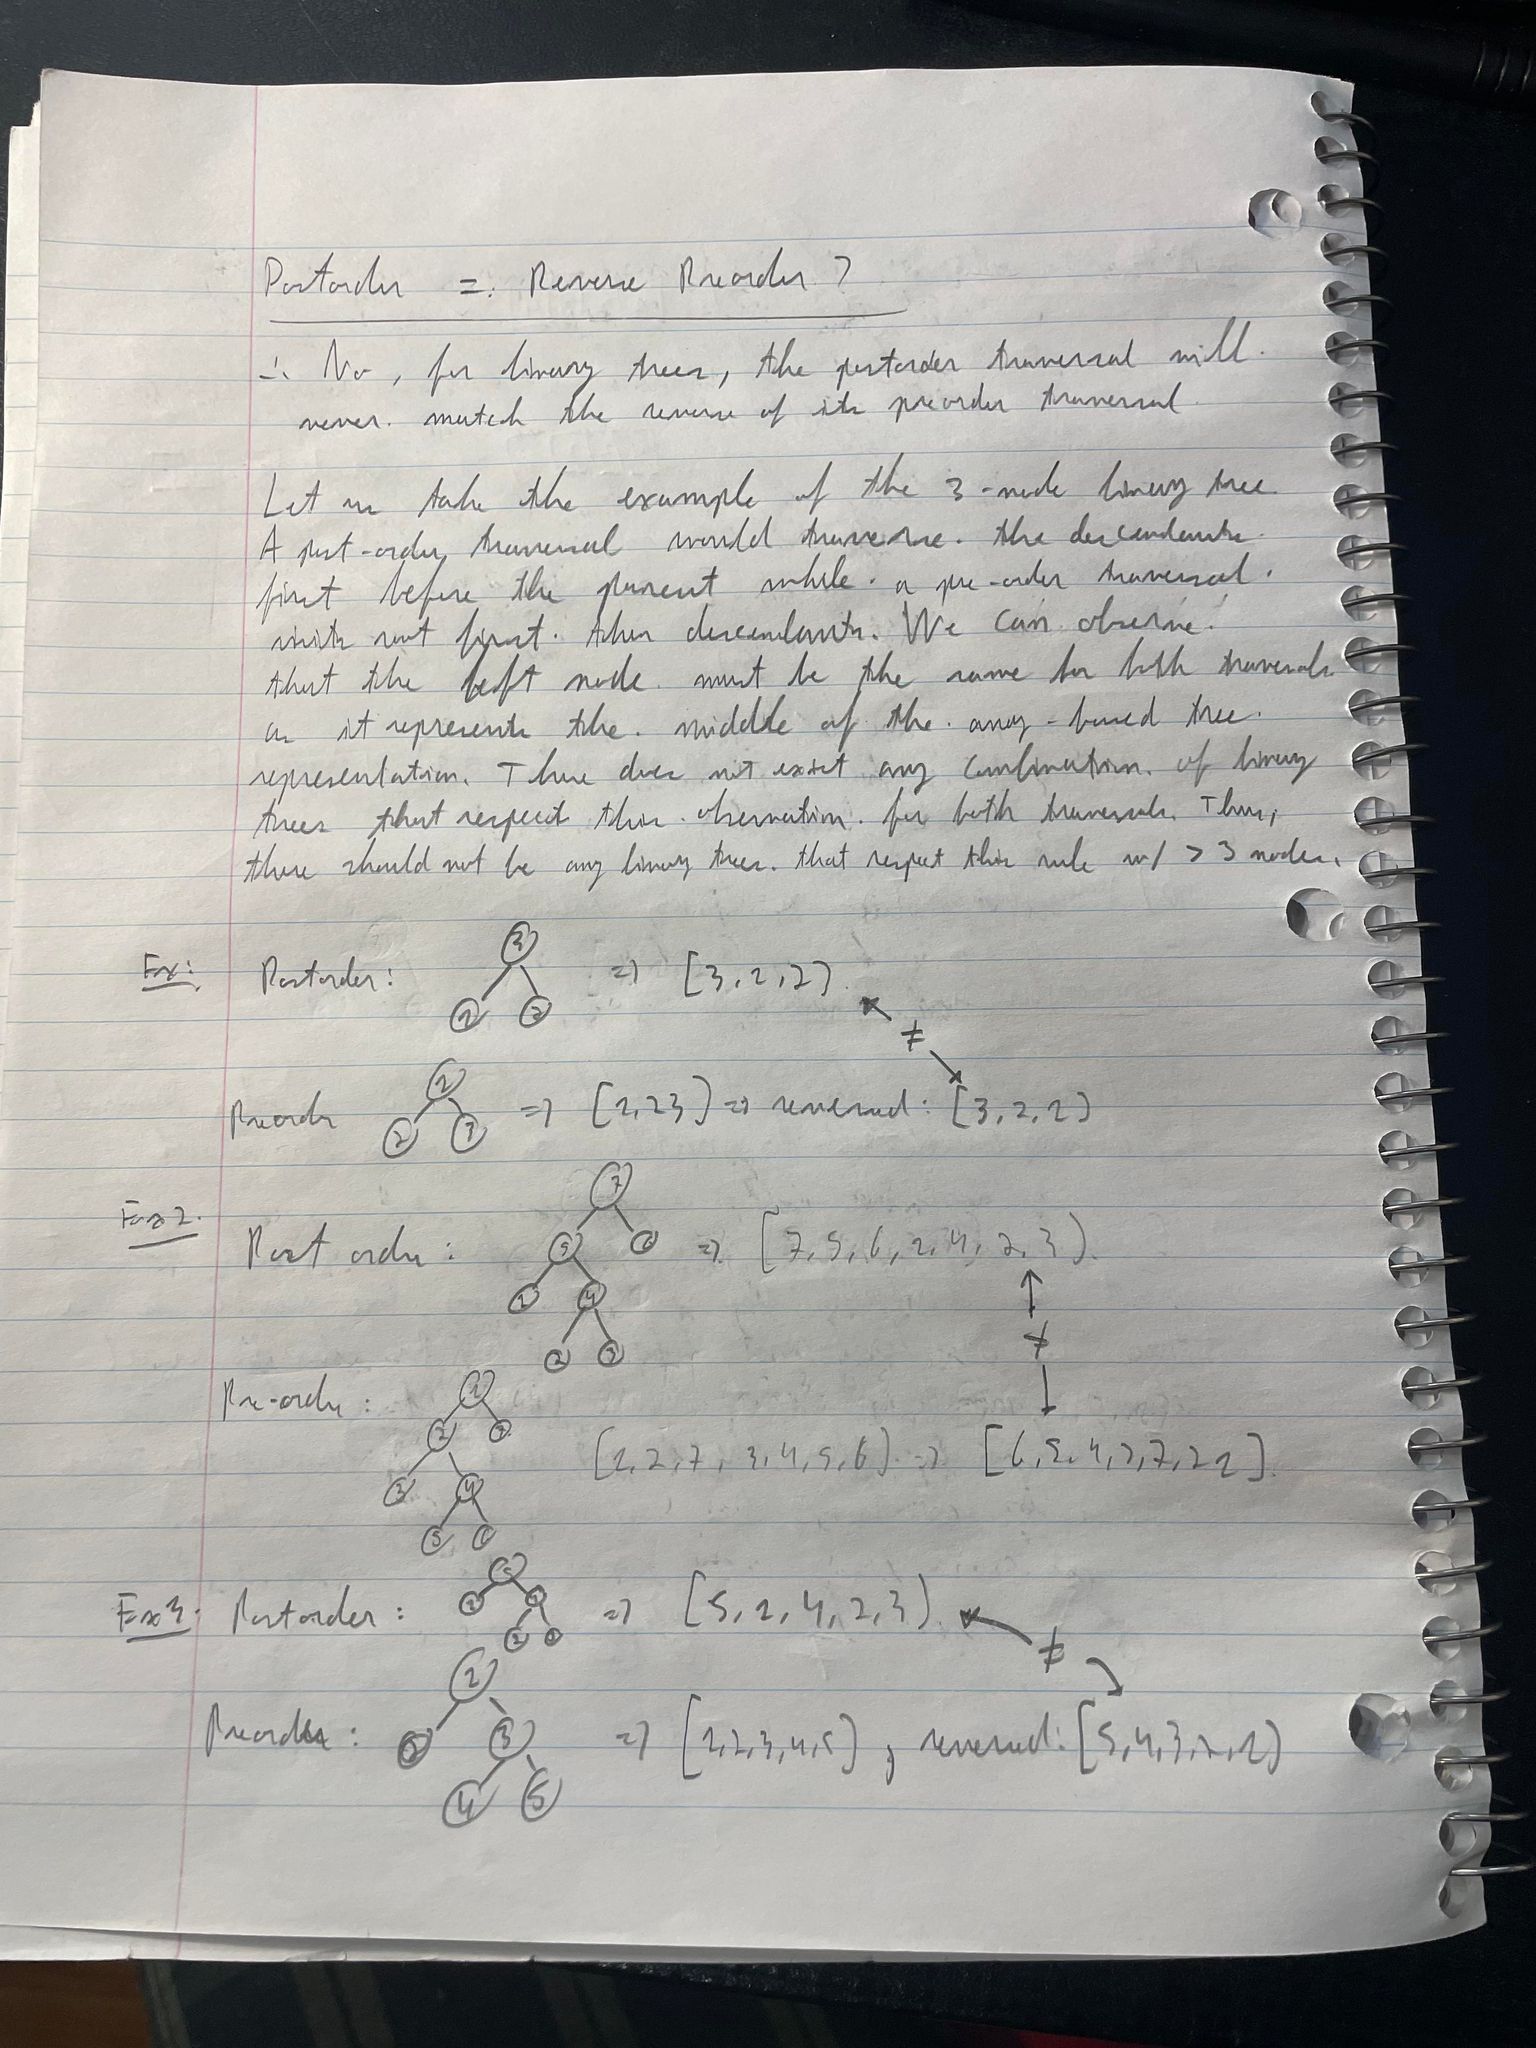 Postorder =: Reverse Preorder ?
∴ No, for binary trees, the postorder traversal will
never match the reverse of its preorder traversal.
Let us take the example of the 3-node binary tree
A post-order traversal would traverse the descendants
first before the parent while a pre-order traversal
visits root first then descendants. We can observe
that the left node must be the same for both traversals
as it represents the middle of the array-based tree
representation. There does not exist any combination of binary
trees that respect this observation for both traversals. Thus,
there should not be any binary trees that respect this rule w/ > 3 nodes.
3
Ex: Postorder: => [3,1,2]
1 2
≠
1
Preorder => [1,23] => reversed: [3,2,1]
2 3
7
Ex2. Post order: 5 6 => [7,5,6,1,4,2,3]
1 4
2 3
≠
Pre-order: 1
2 7
[1,2,7,3,4,5,6] => [6,5,4,3,7,2 1]
3 4
5 6
5
Ex3: Postorder: 1 4 => [5,1,4,2,3]
2 3
≠
1
Preorder: 2 3 => [1,2,3,4,5], reversed: [5,4,3,2,1]
4 5